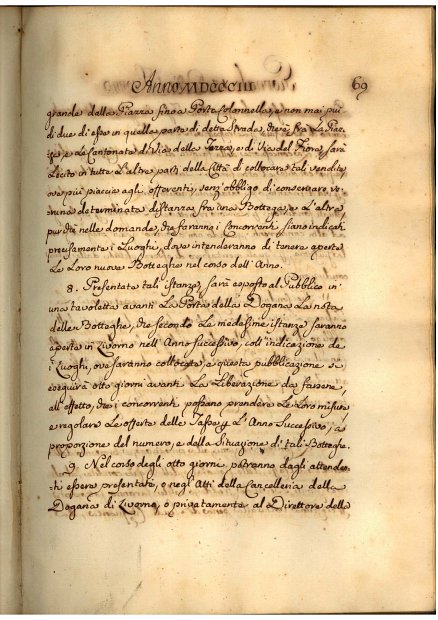 Anno MDCCCIII
69
grande della Piazza fino a Porta Colonnella, e non mai più
di due di esse in quella parte di detta Strada, che è fra La Piaz-
za, e Le Cantonate di Via della Terra, e di Via del Fiore, sarà
Lecito in tutte L'altre parti della Città di collocare tali vendite
ove più piaccia agl. offerenti, senz'obbligo di conservare ve-
runa determinata distanza fra una Bottega, e L'altra,
purchè nelle domande, che faranno i Concorrenti siano indicati
precisamente i Luoghi, dove intenderanno di tenere aperte
Le Loro nuove Botteghe nel corso dell'Anno.
8. Presentate tali istanze, sarà esposto al Pubblico in
una tavoletta avanti La Porta della Dogana La nota
delle Botteghe, che secondo Le medesime istanze saranno
aperte in Livorno nell'Anno successivo, coll'indicazione de
i Luoghi, ove saranno collocate, e questa pubblicazione se-
eseguirà otto giorni avanti La Liberazione da farsene,
all'effetto, che i concorrenti possano prendere Le Loro misure
e regolare Le offerte delle Tasse p L'Anno Successivo, a
proporzione del numero, e della Situazione di tali Botteghe.
9. Nel corso degli otto giorni potranno dagli attenden-
ti essere presentate, o negl'Atti della Cancelleria della
Dogana di Livorno, o privatamente al Direttore della